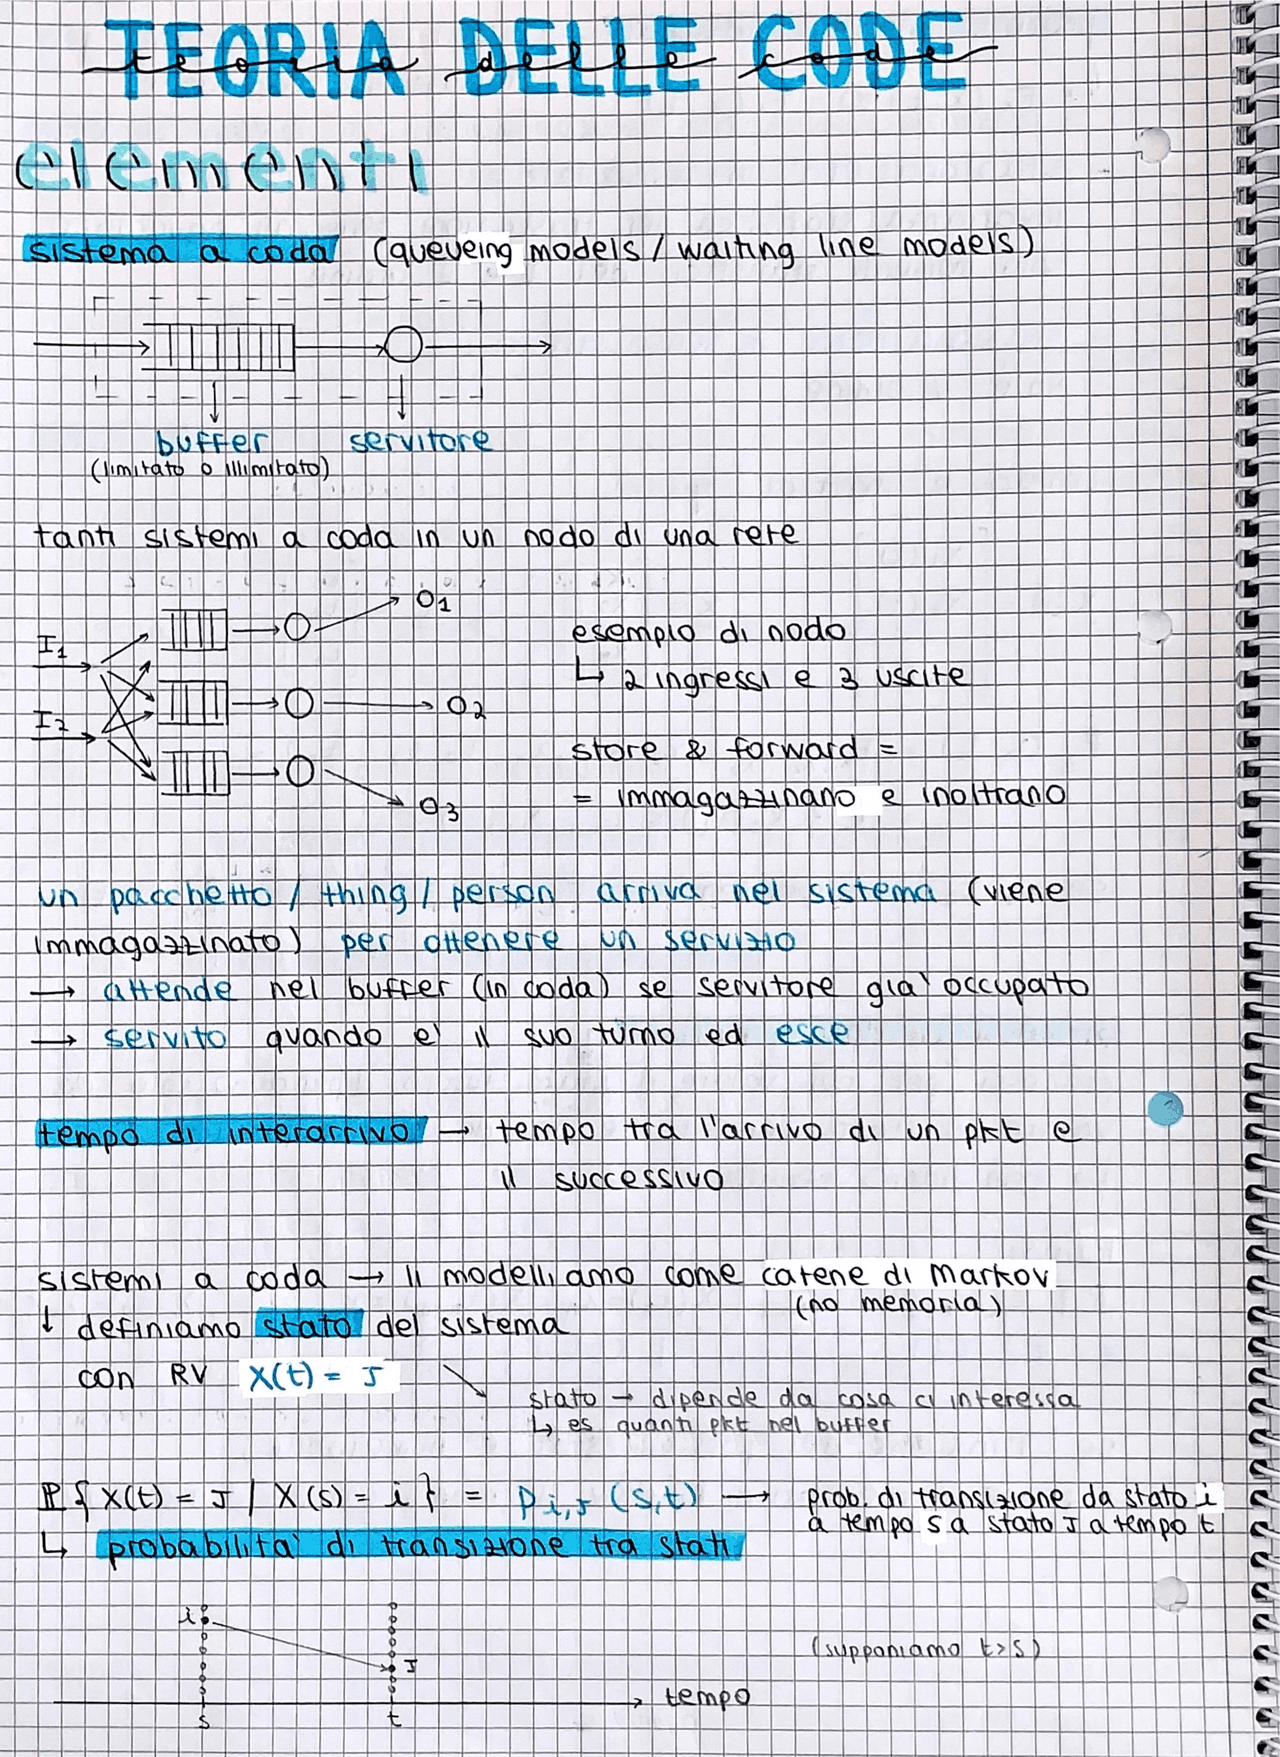 TEORIA DELLE CODE
teoria delle code
elementi
sistema a coda (queueing models / waiting line models)
buffer servitore
(limitato o illimitato)
tanti sistemi a coda in un nodo di una rete
O1
I1
esempio di nodo
↳ 2 ingressi e 3 uscite
I2
O2
store & forward =
= immagazzinano e inoltrano
O3
un pacchetto / thing / person arriva nel sistema (viene
immagazzinato) per ottenere un servizio
→ attende nel buffer (in coda) se servitore gia' occupato
→ servito quando e' il suo turno ed esce
tempo di interarrivo → tempo tra l'arrivo di un pkt e
il successivo
sistemi a coda → li modelliamo come catene di Markov
(no memoria)
↓ definiamo stato del sistema
con RV X(t) = J
stato → dipende da cosa ci interessa
↳ es quanti pkt nel buffer
ℙ { X(t) = J / X(s) = i } = P i,J (s,t) → prob. di transizione da stato i
a tempo s a stato J a tempo t
↳ probabilita' di transizione tra stati
i
(supponiamo t>s)
J
tempo
s t